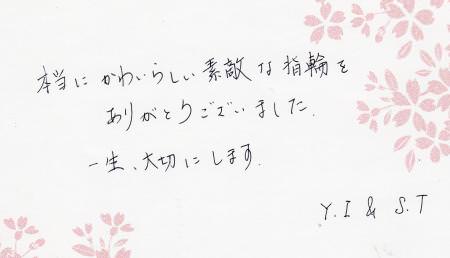 本当に かわいらしい 素敵な指輪を
ありがとうございました.
一生、大切にします.
Y.I & S.T